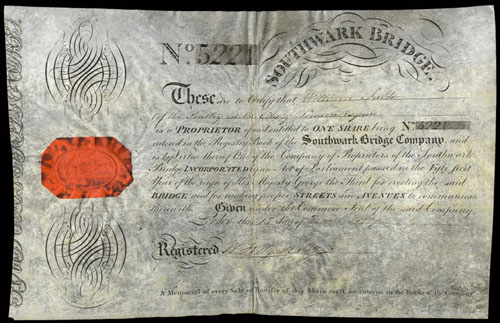 No. 5221
SOUTHWARK BRIDGE.
These are to Certify that William
of the
is a PROPRIETOR of and entitled to ONE SHARE being No. 5221
entered in the Registry Book of the Southwark Bridge Company, and
is by Law One of the Company of Proprietors of the Southwark
Bridge INCORPORATED by an Act of Parliament passed in the Fifty first
Year of the reign of His Majesty George the Third for erecting the said
BRIDGE and for making proper STREETS and AVENUES to communicate
therewith. Given under the Common Seal of the said Company
day of
Registered
A Memorial of every Sale or Transfer of this Share must be entered in the Books of the Company